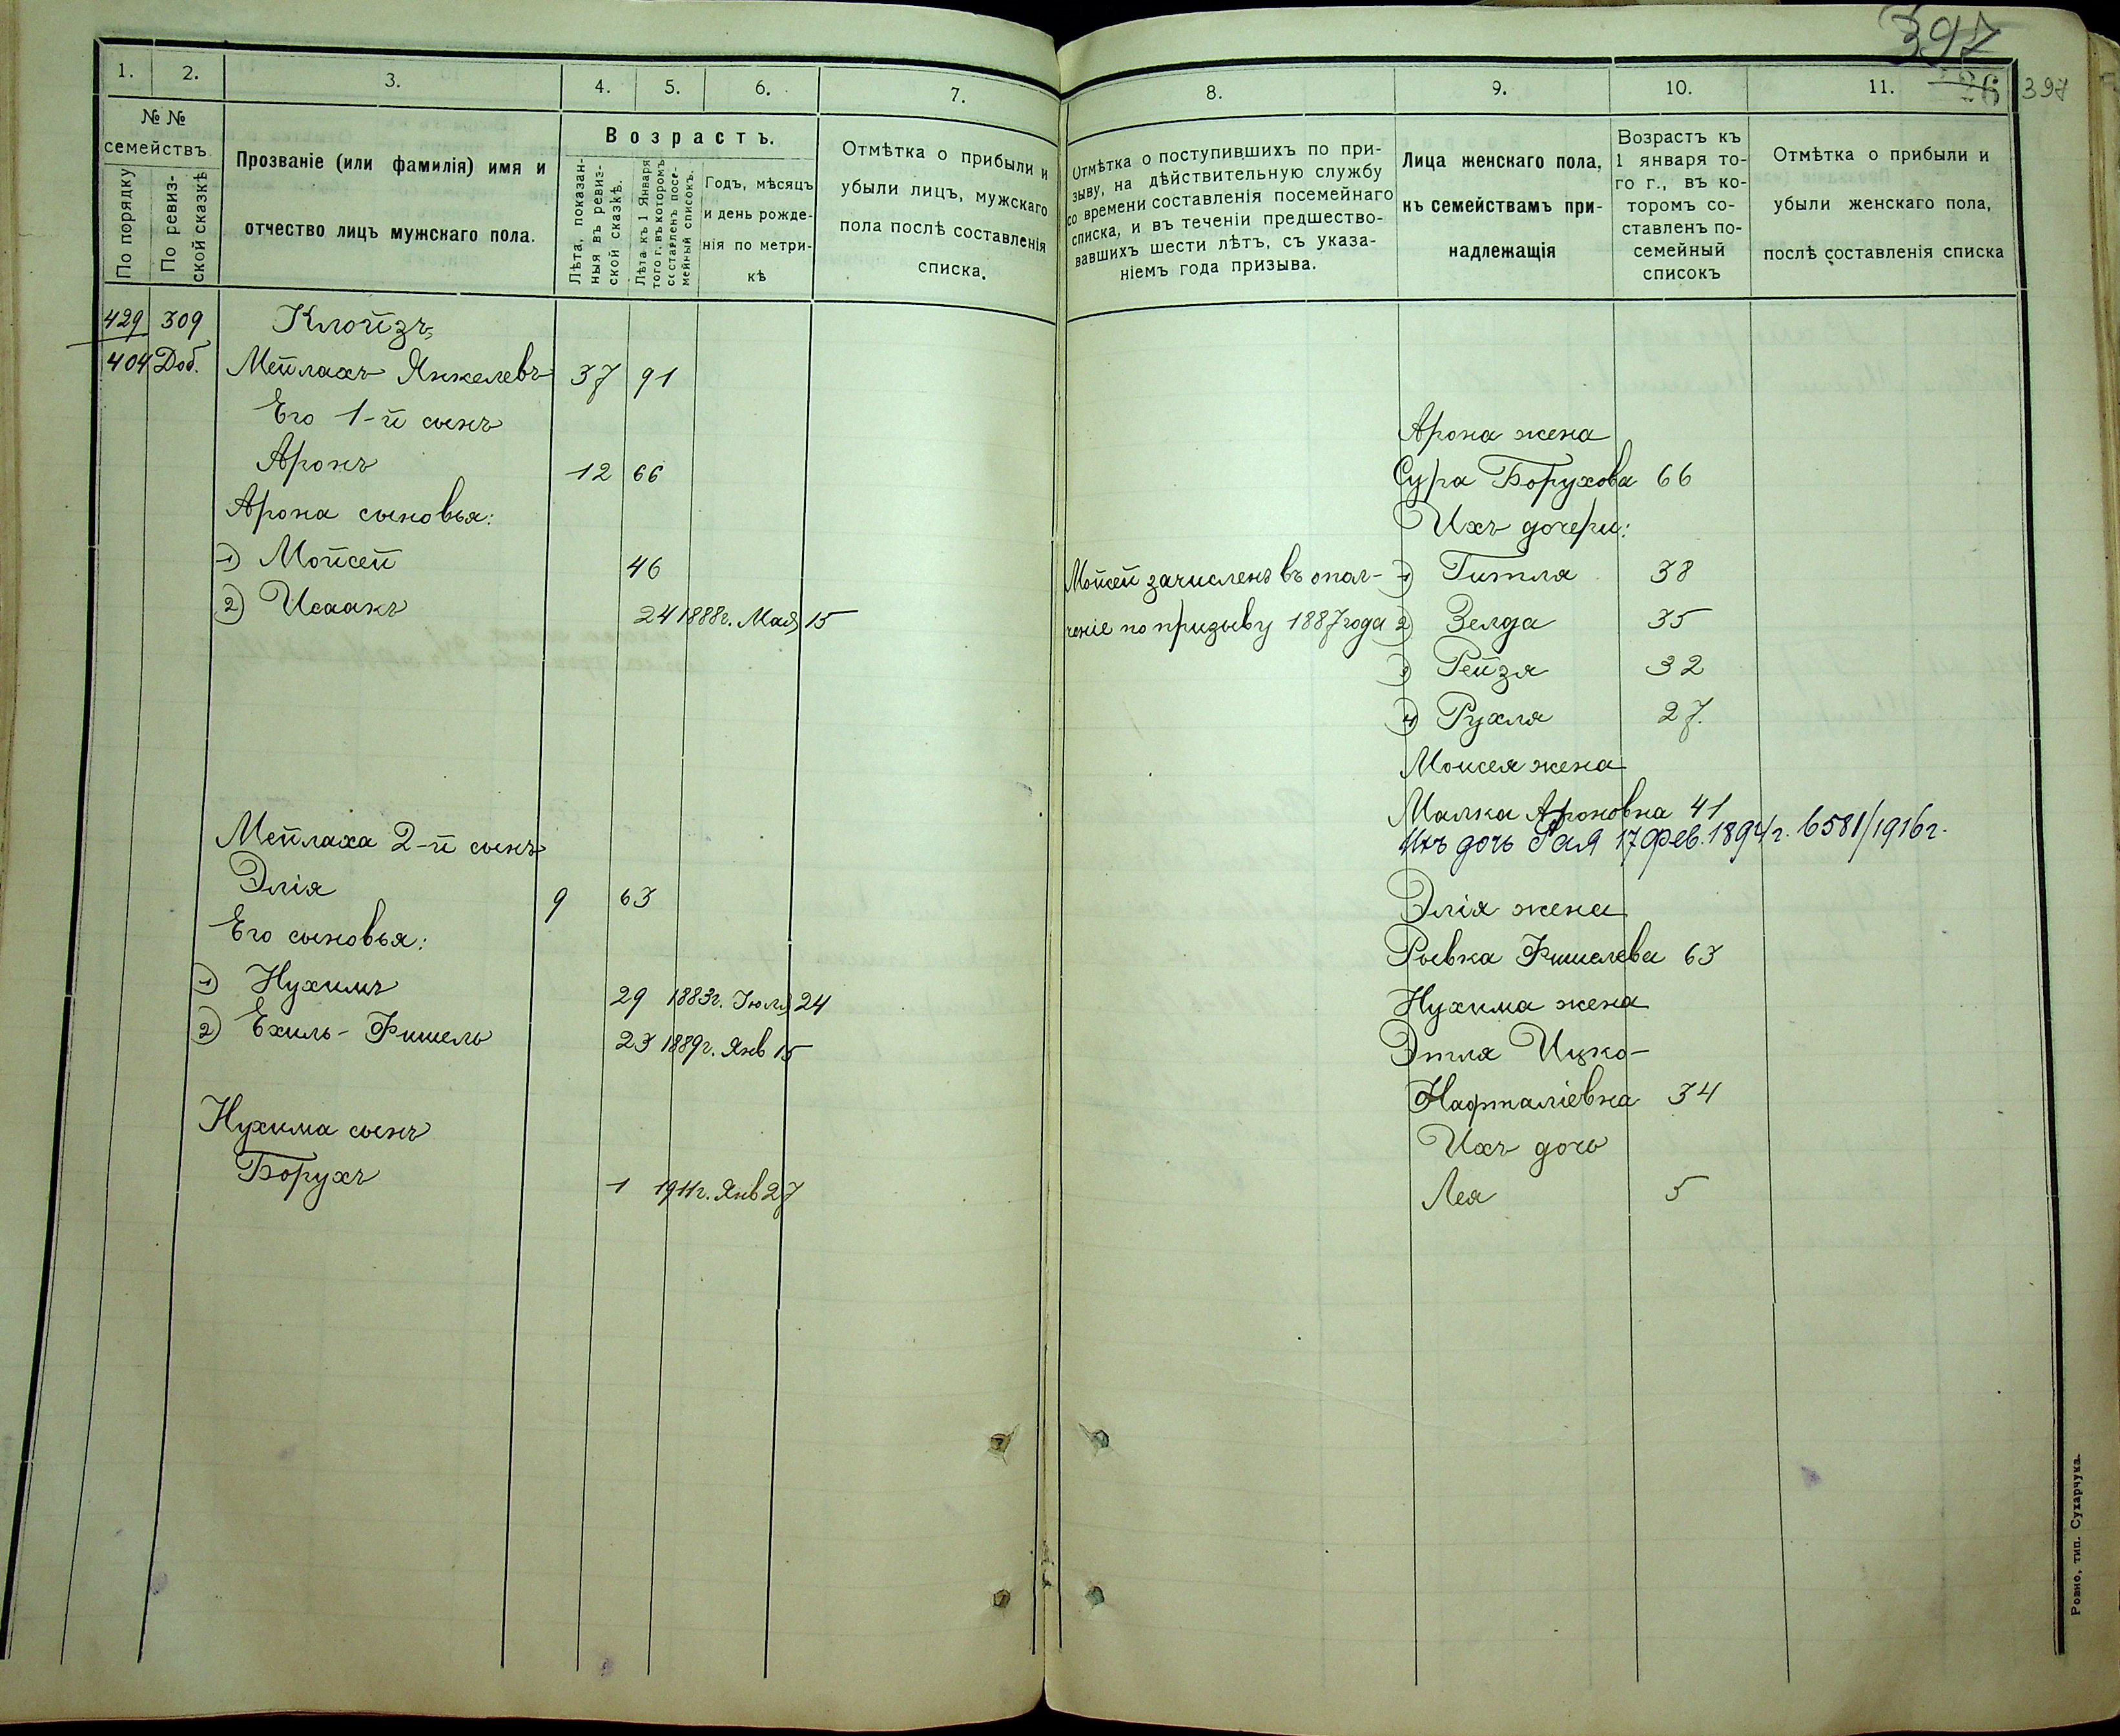 397
26 397
1. 2. 3. 4. 5. 6. 7.
№ №
семействъ
По порядку
По ревиз-
ской сказкѣ
Прозваніе (или фамилія) имя и
отчество лицъ мужскаго пола.
Возрастъ.
Лѣта, показан-
ныя въ ревиз-
ской сказкѣ.
Лѣта къ 1 Января
того г. въ которомъ
составленъ посе-
мейный списокъ.
Годъ, мѣсяцъ
и день рожде-
нія по метри-
кѣ
Отмѣтка о прибыли и
убыли лицъ, мужскаго
пола послѣ составленія
списка.
429 309 Клойзъ
404 Доб. Мейлахъ Янкелевъ 37 91
Его 1-й сынъ
Аронъ 12 66
Арона сыновья:
1) Мойсей 46
2) Исаакъ 24 1888г. Мая 15
Мейлаха 2-й сынъ
Элія 9 63
Его сыновья:
1) Нухимъ 29 1883г. Іюля 24
2) Ехиль-Фишель 23 1889г. Янв 15
Нухима сынъ
Борухъ 1 1911г. Янв 27
8. 9. 10. 11.
Отмѣтка о поступившихъ по при-
зыву, на дѣйствительную службу
со времени составленія посемейнаго
списка, и въ теченіи предшество-
вавшихъ шести лѣтъ, съ указа-
ніемъ года призыва.
Лица женскаго пола,
къ семействамъ при-
надлежащія
Возрастъ къ
1 января то-
го г., въ ко-
торомъ со-
ставленъ по-
семейный
списокъ
Отмѣтка о прибыли и
убыли женскаго пола,
послѣ составленія списка
Арона жена
Сура Борухова 66
Ихъ дочери:
Мойсей зачисленъ въ опол- 1) Гитля 38
ченіе по призыву 1887 года 2) Зелда 35
3) Рейзя 32
4) Рухля 27.
Моисея жена
Малка Ароновна 41
Ихъ дочь Рая 17 фев. 1894 г. 6581/1916 г.
Элія жена
Ривка Фишелева 63
Нухима жена
Этля Ицко-
Нафталіевна 34
Ихъ дочь
Лея 5
Ровно, тип. Сухарчука.